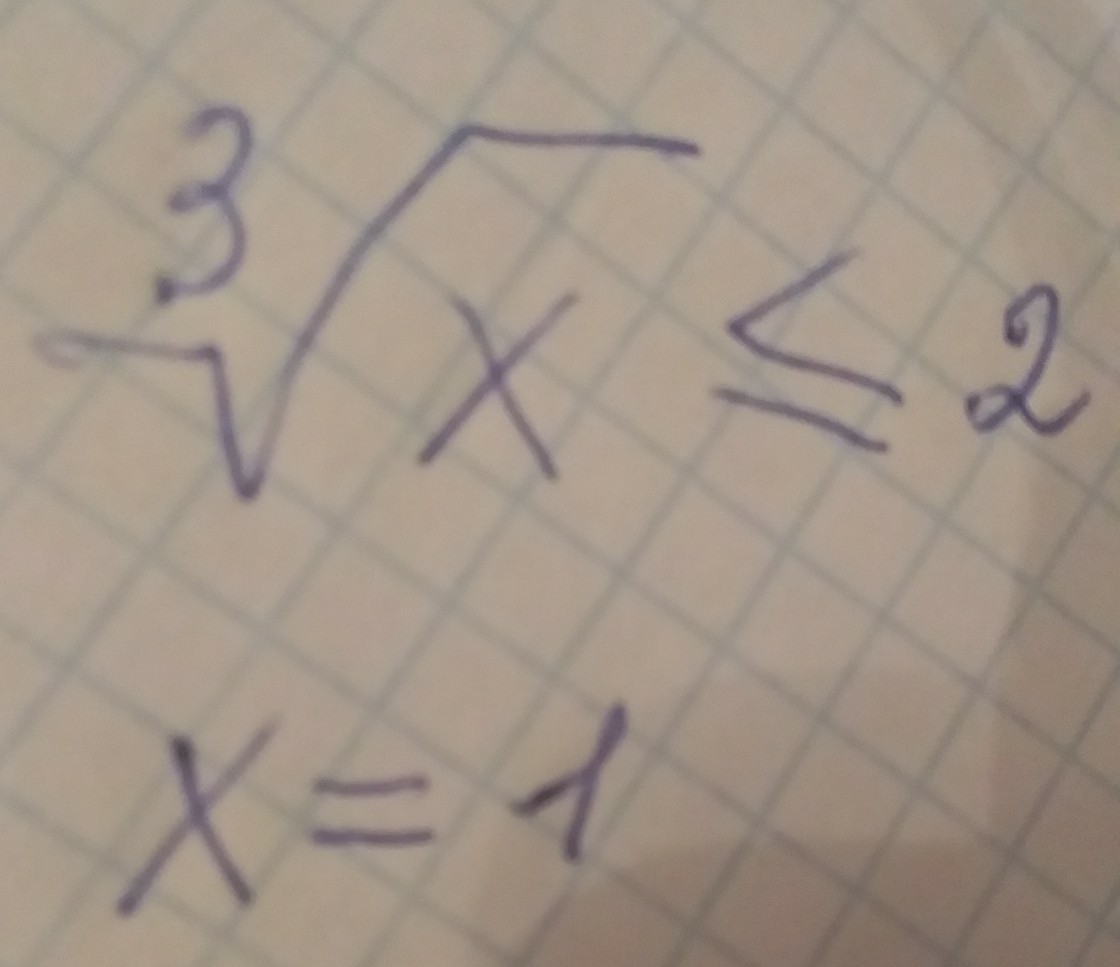 ∛x ≤ 2
x = 1